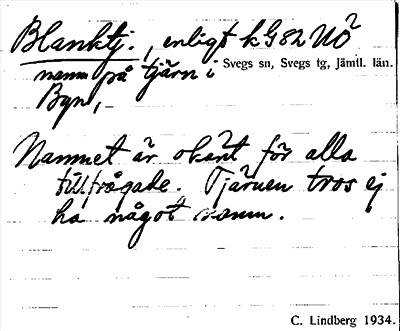 Blanktj., enligt kG82 NÖ
namn på tjärn i Svegs sn, Svegs tg, Jämtl. län.
Byn,-
Namnet är okänt för alla
tillfrågade. Tjärnen tros ej
ha något namn.
C. Lindberg 1934.